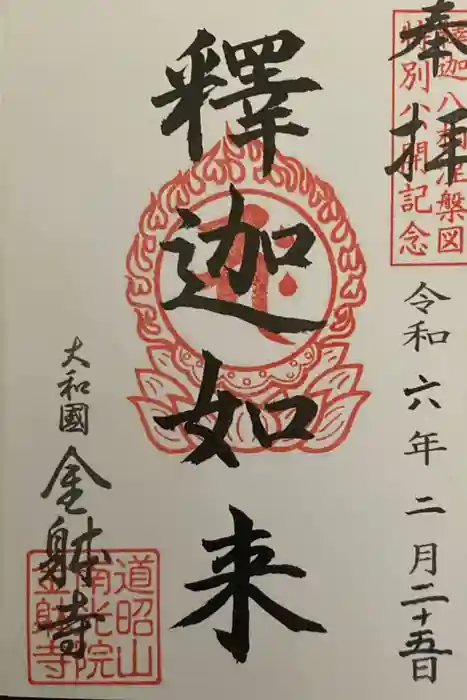 奉拝
釋迦八相涅槃図
特別公開記念
令和六年二月二十五日
釋迦如来
大和國
金躰寺
道昭山
南光院
金躰寺